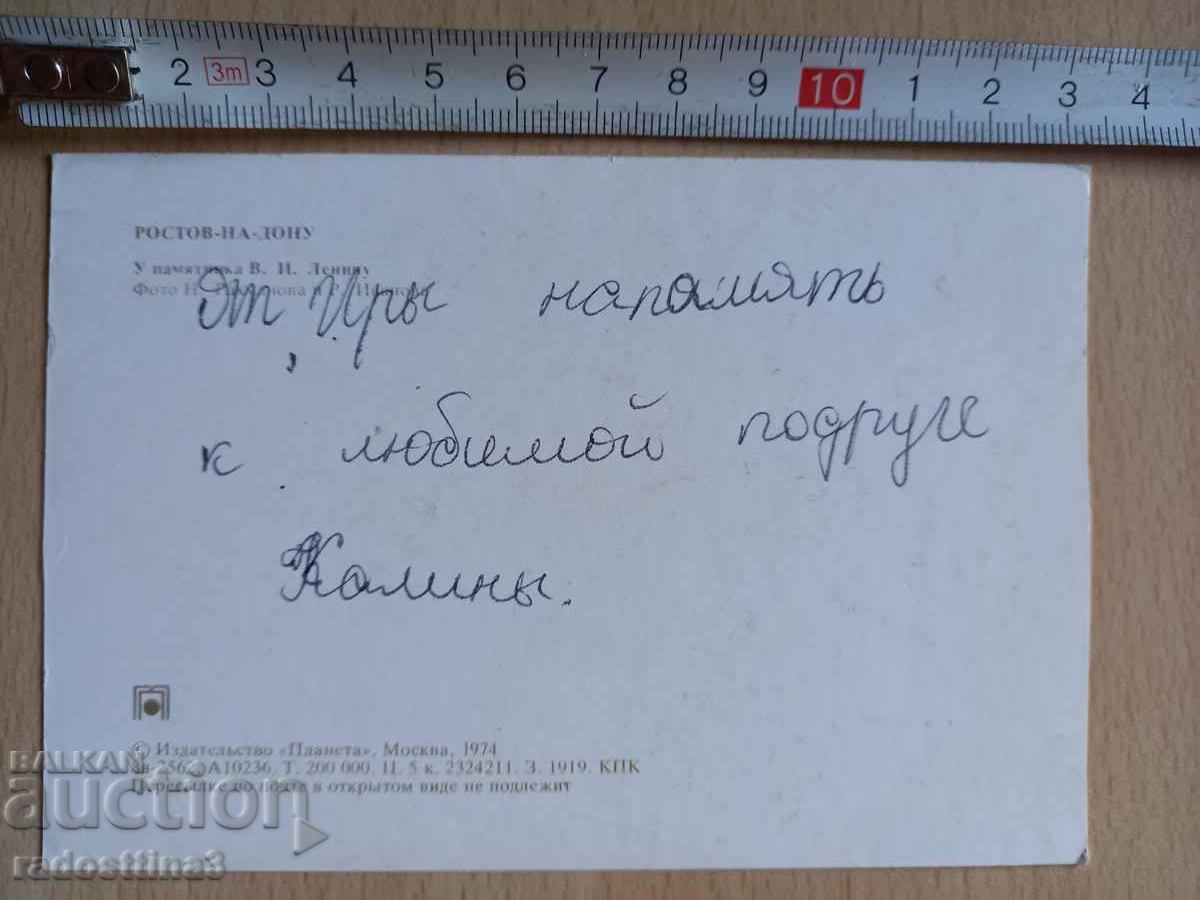 2 3m 3 4 5 6 7 8 9 10 1 2 3 4
РОСТОВ-НА-ДОНУ
У памятника В. И. Ленину
Фото Н. и Р.
От Иры напамять
к любимой подруге
Калины.
© Издательство «Планета». Москва, 1974
А10236. Т. 200 000. Ц. 5 к. 2324211. З. 1919. КПК
Пересылке по почте в открытом виде не подлежит
BALKAN
auction
radosttina3